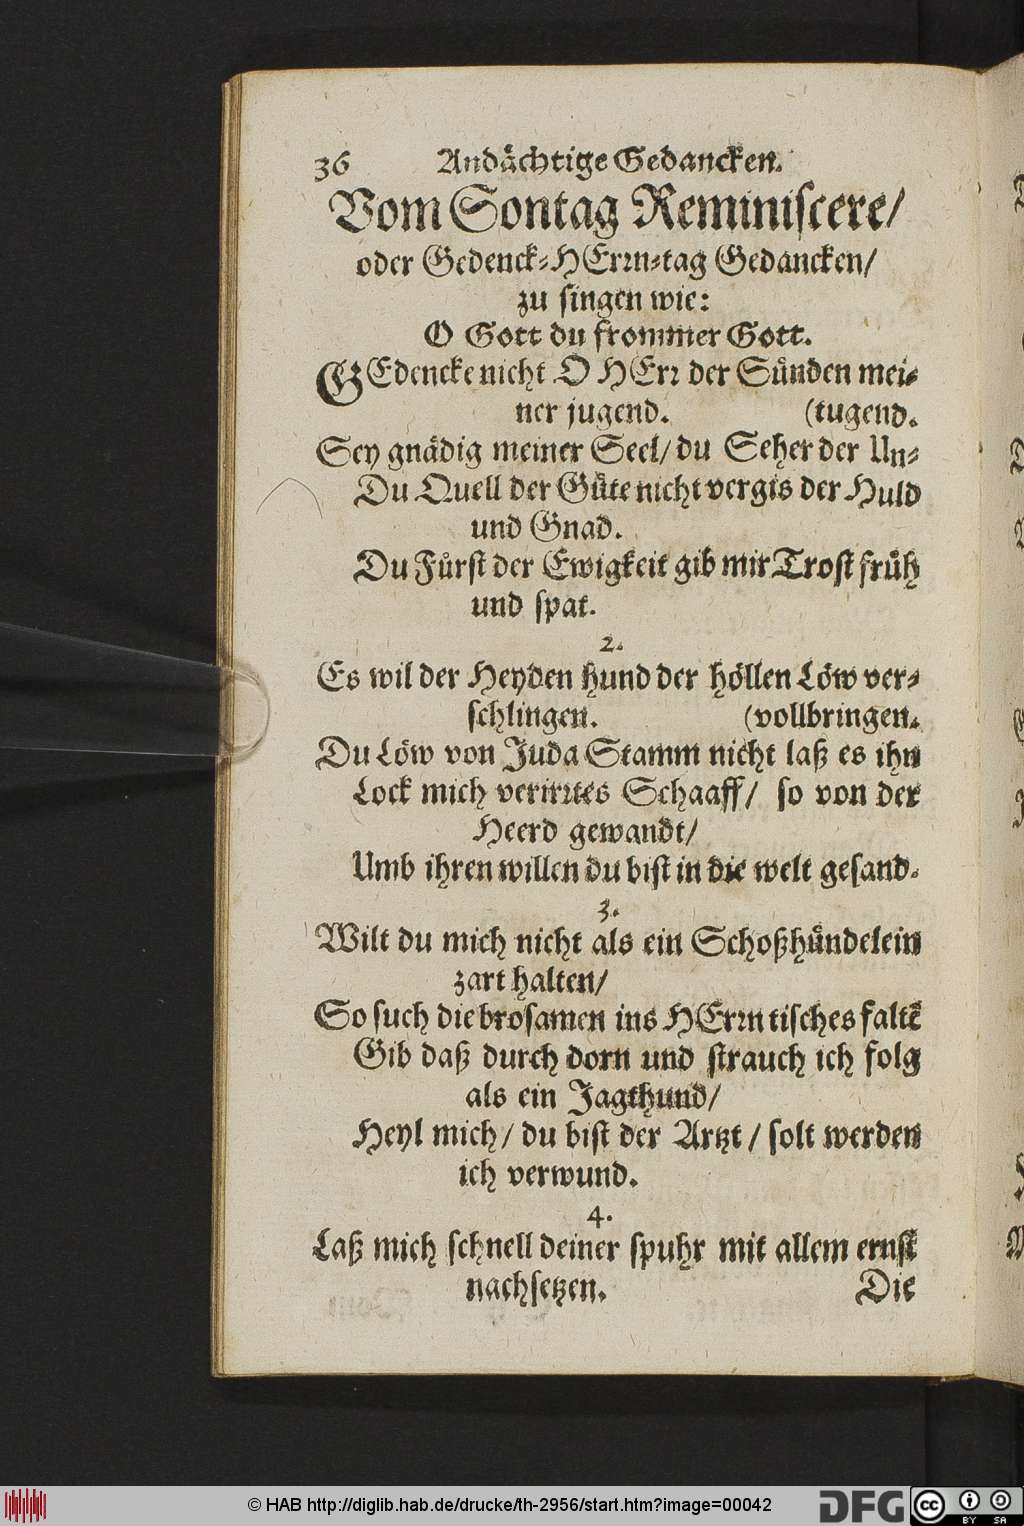 36 Andächtige Gedancken.
Vom Sontag Reminiscere/
oder Gedenck-HErrn-tag Gedancken/
zu singen wie:
O Gott du frommer Gott.
GEdencke nicht O HErr der Sünden mei-
ner jugend. (tugend.
Sey gnädig meiner Seel/ du Seher der Un-
Du Quell der Güte nicht vergis der Huld
und Gnad.
Du Fürst der Ewigkeit gib mir Trost früh
und spat.
2.
Es wil der Heyden hund der höllen Löw ver-
schlingen. (vollbringen.
Du Löw von Juda Stamm nicht laß es ihn
Lock mich verirrtes Schaaff/ so von der
Heerd gewandt/
Umb ihren willen du bist in die welt gesand.
3.
Wilt du mich nicht als ein Schoßhündelein
zart halten/
So such die brosamen ins HErrn tisches faltẽ
Gib daß durch dorn und strauch ich folg
als ein Jagthund/
Heyl mich/ du bist der Artzt/ solt werden
ich verwund.
4.
Laß mich schnell deiner spuhr mit allem ernst
nachsetzen. Die
© HAB http://diglib.hab.de/drucke/th-2956/start.htm?image=00042
DFG
cc BY SA